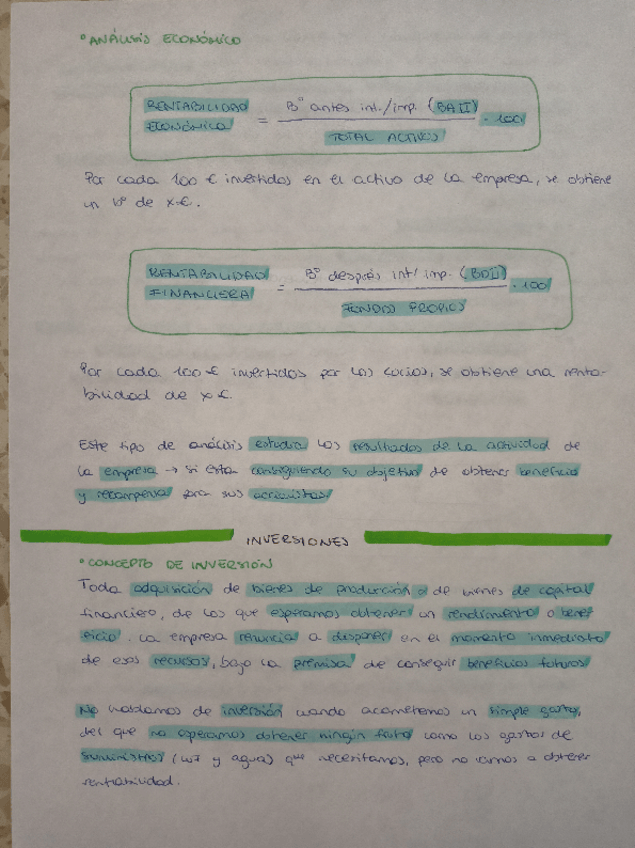 ° ANÁLISIS ECONÓMICO
RENTABILIDAD ECONÓMICA = Bº antes int./imp. (BAII) / TOTAL ACTIVOS · 100
Por cada 100 € invertidos en el activo de la empresa, se obtiene
un Bº de x €.
RENTABILIDAD FINANCIERA = Bº después int/imp. (BDII) / FONDOS PROPIOS · 100
Por cada 100 € invertidos por los socios, se obtiene una renta-
bilidad de x €.
Este tipo de análisis estudia los resultados de la actividad de
la empresa → si están consiguiendo su objetivo de obtener beneficio
y recompensa para sus accionistas
INVERSIONES
° CONCEPTO DE INVERSIÓN
Toda adquisición de bienes de producción o de bienes de capital
financiero, de los que esperamos obtener un rendimiento o benef
icio. La empresa renuncia a disponer en el momento inmediato
de esos recursos, bajo la premisa de conseguir beneficios futuros
No hablamos de inversión cuando acometemos un simple gasto,
del que no esperamos obtener ningún fruto como los gastos de
suministros (luz y agua) que necesitamos, pero no vamos a obtener
rentabilidad.